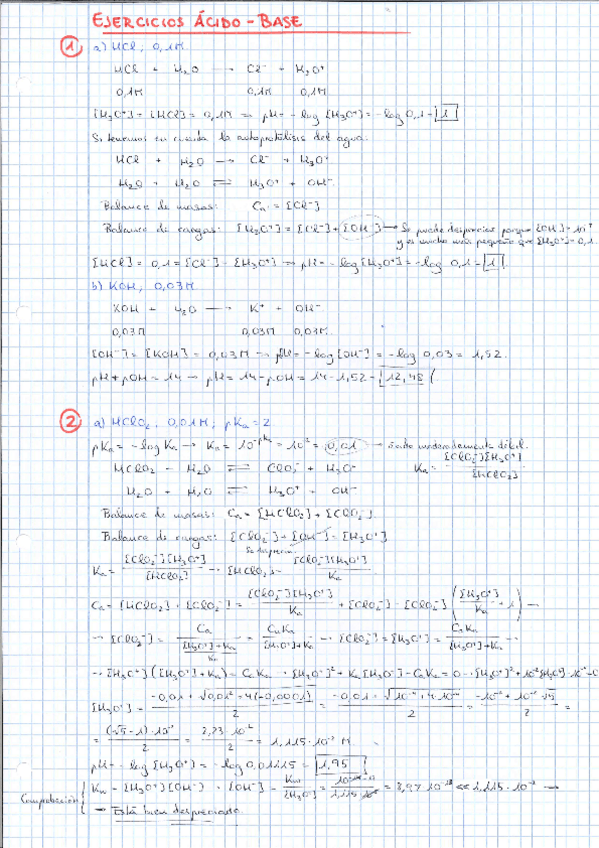 EJERCICIOS ÁCIDO-BASE
1 a) HCl, 0,1M.
HCl + H₂O → Cl⁻ + H₃O⁺
0,1M 0,1M 0,1M
[H₃O⁺] = [HCl] = 0,1M → pH = -log [H₃O⁺] = -log 0,1 = 1
Si tenemos en cuenta la autoprotólisis del agua:
HCl + H₂O → Cl⁻ + H₃O⁺
H₂O + H₂O ⇌ H₃O⁺ + OH⁻
Balance de masas: Ca = [Cl⁻]
Balance de cargas: [H₃O⁺] = [Cl⁻] + [OH⁻] → Se puede despreciar porque [OH⁻] = 10⁻⁷
y es mucho más pequeño que [H₃O⁺] = 0,1.
[HCl] = 0,1 = [Cl⁻] = [H₃O⁺] → pH = -log [H₃O⁺] = -log 0,1 = 1
b) KOH, 0,03M.
KOH + H₂O → K⁺ + OH⁻
0,03M 0,03M 0,03M
[OH⁻] = [KOH] = 0,03M → = -log [OH⁻] = -log 0,03 = 1,52.
pH + pOH = 14 → pH = 14 - pOH = 14 - 1,52 = 12,48
2 a) HClO₂, 0,01M; pKa = 2
pKa = -log Ka → Ka = = 0,01 → Ácido moderadamente débil.
HClO₂ + H₂O ⇌ ClO₂⁻ + H₃O⁺ Ka = [ClO₂⁻][H₃O⁺] / [HClO₂]
H₂O + H₂O ⇌ H₃O⁺ + OH⁻
Balance de masas: Ca = [HClO₂] + [ClO₂⁻].
Balance de cargas: [ClO₂⁻] + [OH⁻] = [H₃O⁺]
Se desprecia
Ka = [ClO₂⁻][H₃O⁺] / [HClO₂] → [HClO₂] = [ClO₂⁻][H₃O⁺] / Ka
Ca = [HClO₂] + [ClO₂⁻] = [ClO₂⁻][H₃O⁺] / Ka + [ClO₂⁻] = [ClO₂⁻] ([H₃O⁺] / Ka + 1) →
→ [ClO₂⁻] = Ca / (([H₃O⁺] + Ka) / Ka) = CaKa / ([H₃O⁺] + Ka) → [ClO₂⁻] = [H₃O⁺] = CaKa / ([H₃O⁺] + Ka) →
→ [H₃O⁺] ([H₃O⁺] + Ka) = CaKa → [H₃O⁺]² + Ka[H₃O⁺] - CaKa = 0 →
[H₃O⁺] = / 2 = / 2 = / 2 =
= (√5 - 1) · 10⁻² / 2 = / 2 =
pH = -log [H₃O⁺] = = 1,95
Comprobación Kw = [H₃O⁺][OH⁻] → [OH⁻] = Kw / [H₃O⁺] =
→ Está bien despreciado.